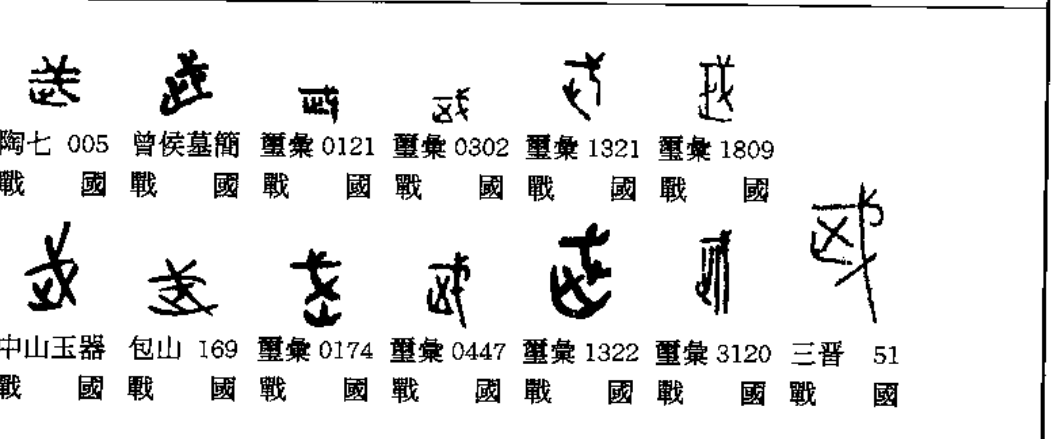 陶七 005 曾侯墓簡 璽彙 0121 璽彙 0302 璽彙 1321 璽彙 1809
戰國 戰國 戰國 戰國 戰國 戰國
中山玉器 包山 169 璽彙 0174 璽彙 0447 璽彙 1322 璽彙 3120 三晋 51
戰國 戰國 戰國 戰國 戰國 戰國 戰國